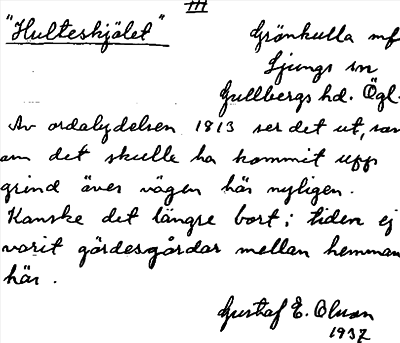 III
"Hulteskjälet"
Grönkulla mf
Ljungs sn
Gullbergs hd. Ögl.
Av ordalydelsen 1813 ser det ut, som
om det skulle ha kommit upp
grind över vägen här nyligen.
Kanske det längre bort i tiden ej
varit gärdesgårdar mellan hemman
här.
Gustaf E. Olsson
1937